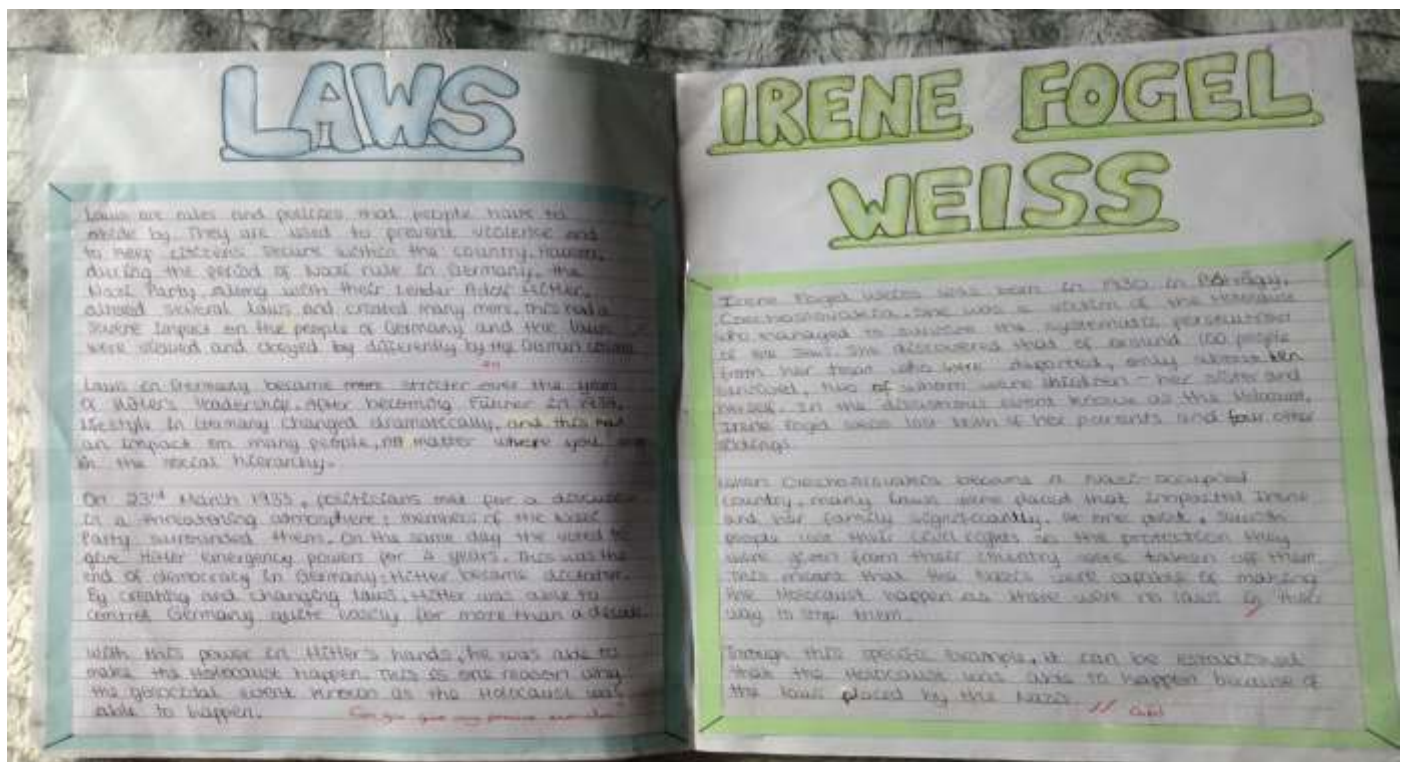 LAWS
Laws are rules and policies that people have to
abide by. They are used to prevent violence and
to keep citizens secure within the country. However,
during the period of Nazi rule in Germany, the
Nazi Party, along with their leader Adolf Hitler,
altered several laws and created many more. This had a
severe impact on the people of Germany and the laws
were viewed and obeyed by differently by the German
Laws in Germany became more stricter over the years
of Hitler's leadership. After becoming Führer in 1934,
lifestyle in Germany changed dramatically, and this had
an impact on many people, no matter where you
in the social hierarchy.
On 23rd March 1933, politicians met for a discussion
in a threatening atmosphere; members of the Nazi
Party surrounded them. On the same day the voted to
give Hitler emergency powers for 4 years. This was the
end of democracy in Germany; Hitler became dictator.
By creating and changing laws, Hitler was able to
control Germany quite easily for more than a decade.
With this power in Hitler's hands, he was able to
make the Holocaust happen. This is one reason why
the genocidal event known as the Holocaust was
able to happen.
Can you give any precise examples?
IRENE FOGEL
WEISS
Irene Fogel Weiss was born in 1930 in
Czechoslovakia. She was a victim of the Holocaust
who managed to survive the systematic persecution
of the Jews. She discovered that of around 100 people
from her town who were deported, only about ten
survived, two of whom were children - her sister and
herself. In the disastrous event known as the Holocaust,
Irene Fogel Weiss lost both of her parents and four other
siblings.
When Czechoslovakia became a Nazi-occupied
country, many laws were placed that impacted Irene
and her family significantly. At one point, Jewish
people lost their civil rights so the protection they
were given from their country were taken off them.
This meant that the Nazis were capable of making
the Holocaust happen as there were no laws in their
way to stop them.
Through this specific example, it can be established
that the Holocaust was able to happen because of
the laws placed by the Nazis.